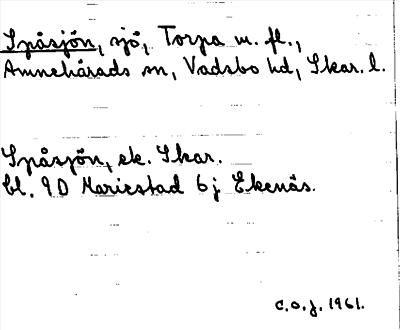 Spåsjön, sjö, Torpa m. fl.,
Amnehärads sn, Vadsbo hd, Skar. l.
Spåsjön, ek. Skar.
bl. 9D Mariestad 6j Ekenäs.
C.O.J. 1961.